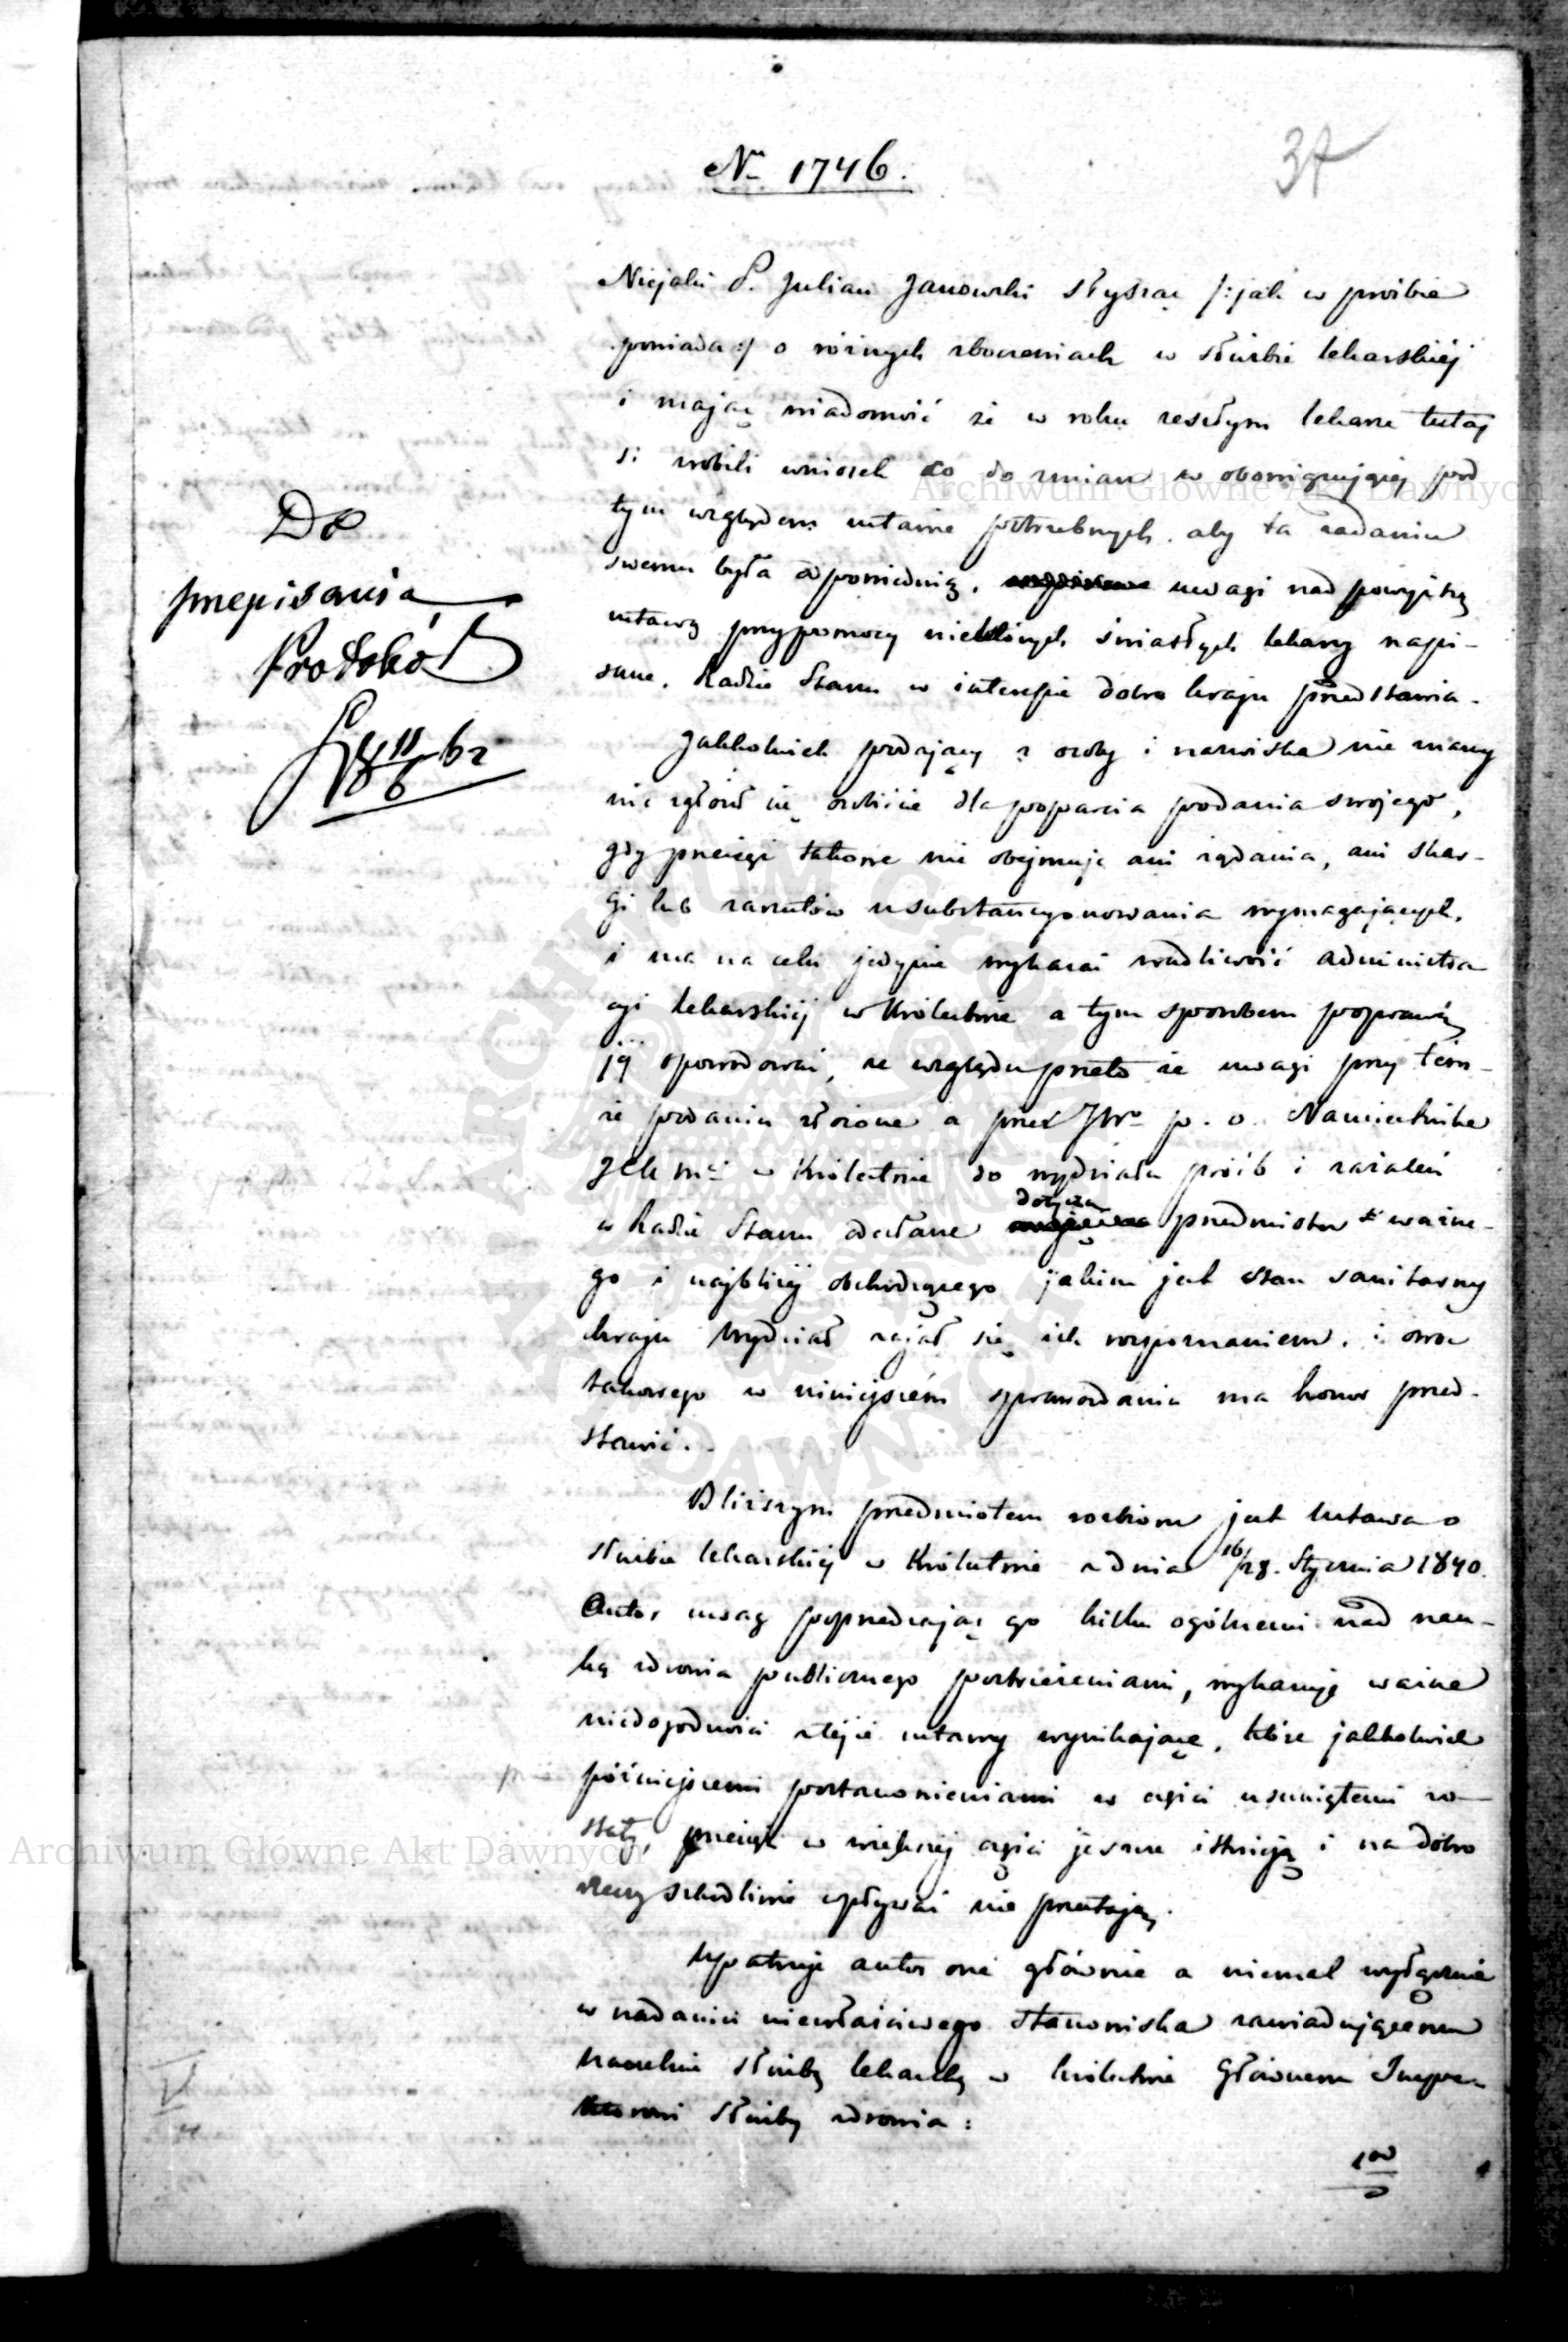 37
Nro 1746.
Niejaki P. Julian Janowski słysząc /:jak w prośbie
powiada:/ o różnych zboczeniach w służbie lekarskiéj
i mając wiadomość że w roku zeszłym lekarze tutaj
si zrobili wniosek co do zmian w obowiązującej pod
tym względem ustawie potrzebnych, aby ta zadaniu
swemu była odpowiednią, uwagi nad powyższą
ustawą przy pomocy niektórych światłych lekarzy napi-
sane, Radzie Stanu w interesie dobra kraju przedstawia.
Jakkolwiek podający z osoby i nazwiska nie znany
nie zgłosił się osobiście dla poparcia podania swojego,
gdy przecież takowe nie obejmuje ani żądania, ani skar-
gi lub zarzutów usubstancyonowania wymagających,
i ma na celu jedynie wykazać wadliwość administra
cyi lekarskiéj w Królestwie a tym sposobem poprawę
jéj spowodować, ze względu przeto że uwagi przy tém-
że podaniu złożone a przez JWo p. o. Namiestnika
JCK Mci w Królestwie do wydziału próśb i zażaleń
w Radzie Stanu odesłane dotyczą przedmiotu ważne-
go i najbliżéj obchodzącego jakim jest stan sanitarny
kraju Wydział zajął się ich rozpoznaniem, i owoc
takowego w niniejszém sprawozdaniu ma honor przed-
stawić.
Bliższym przedmiotem rozbioru jest Ustawa o
służbie lekarskiéj w Królestwie z dnia 16/28. Stycznia 1840.
Autor uwag poprzedzając go kilku ogólnemi nad nau-
ką zdrowia publicznego postrzeżeniami, wykazuje ważne
niedogodności z téjże ustawy wynikające, które jakkolwiek
późniejszemi postanowieniami w części usuniętemi zo-
stały, przecież w większéj części jeszcze istnieją i na dobro
rzeczy szkodliwie wpływać nie przestają.
Upatruje autor one głównie a niemal wyłącznie
w nadaniu niewłaściwego stanowiska zawiadującemu
naczelnie służbą lekarską w Królestwie Głównemu Inspe-
ktorowi służby zdrowia:
Do
przepisania
Protokół
Archiwum Główne Akt Dawnych
Archiwum Główne Akt Dawnych
ARCHIWUM GŁÓWNE AKT DAWNYCH